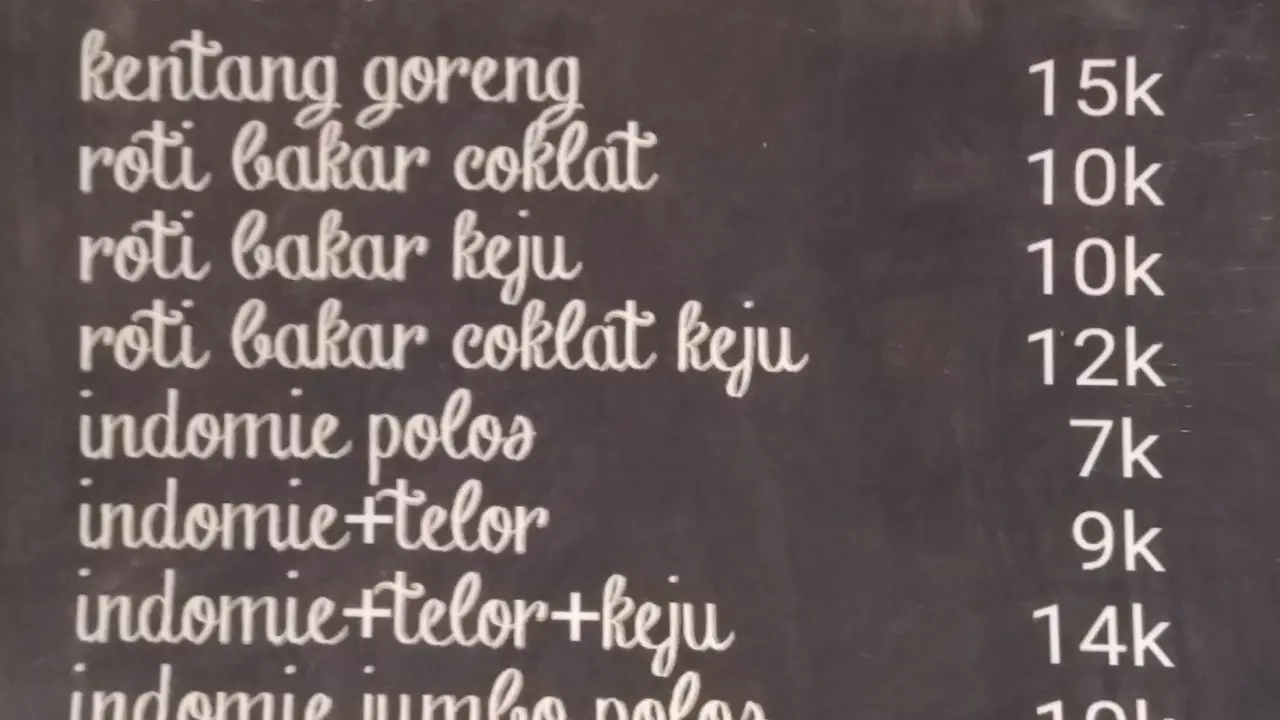 kentang goreng 15k
roti bakar coklat 10k
roti bakar keju 10k
roti bakar coklat keju 12k
indomie polos 7k
indomie+telor 9k
indomie+telor+keju 14k
indomie jumbo polos